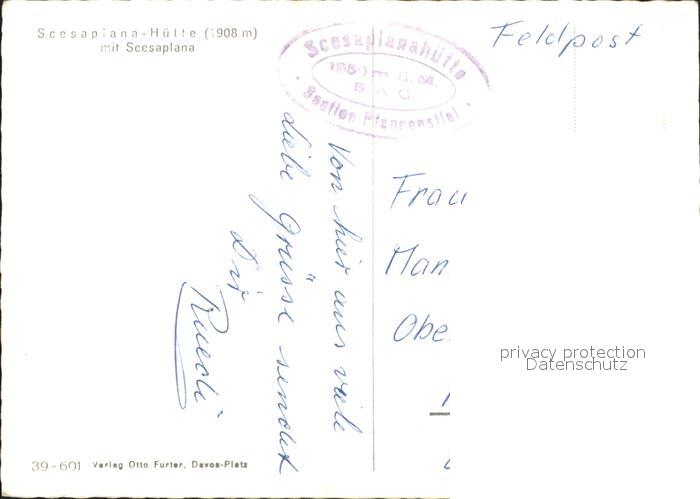 Scesaplana-Hütte (1908 m)
mit Scesaplana
Scesaplanahütte
1850 m ü. M.
S A C
Section Pfannenstiel
Feldpost
Von hier aus viele
liebe Grüsse sendet
Dir
Ruedi
Frau
Man
Obe
privacy protection
Datenschutz
39-601 Verlag Otto Furter, Davos-Platz